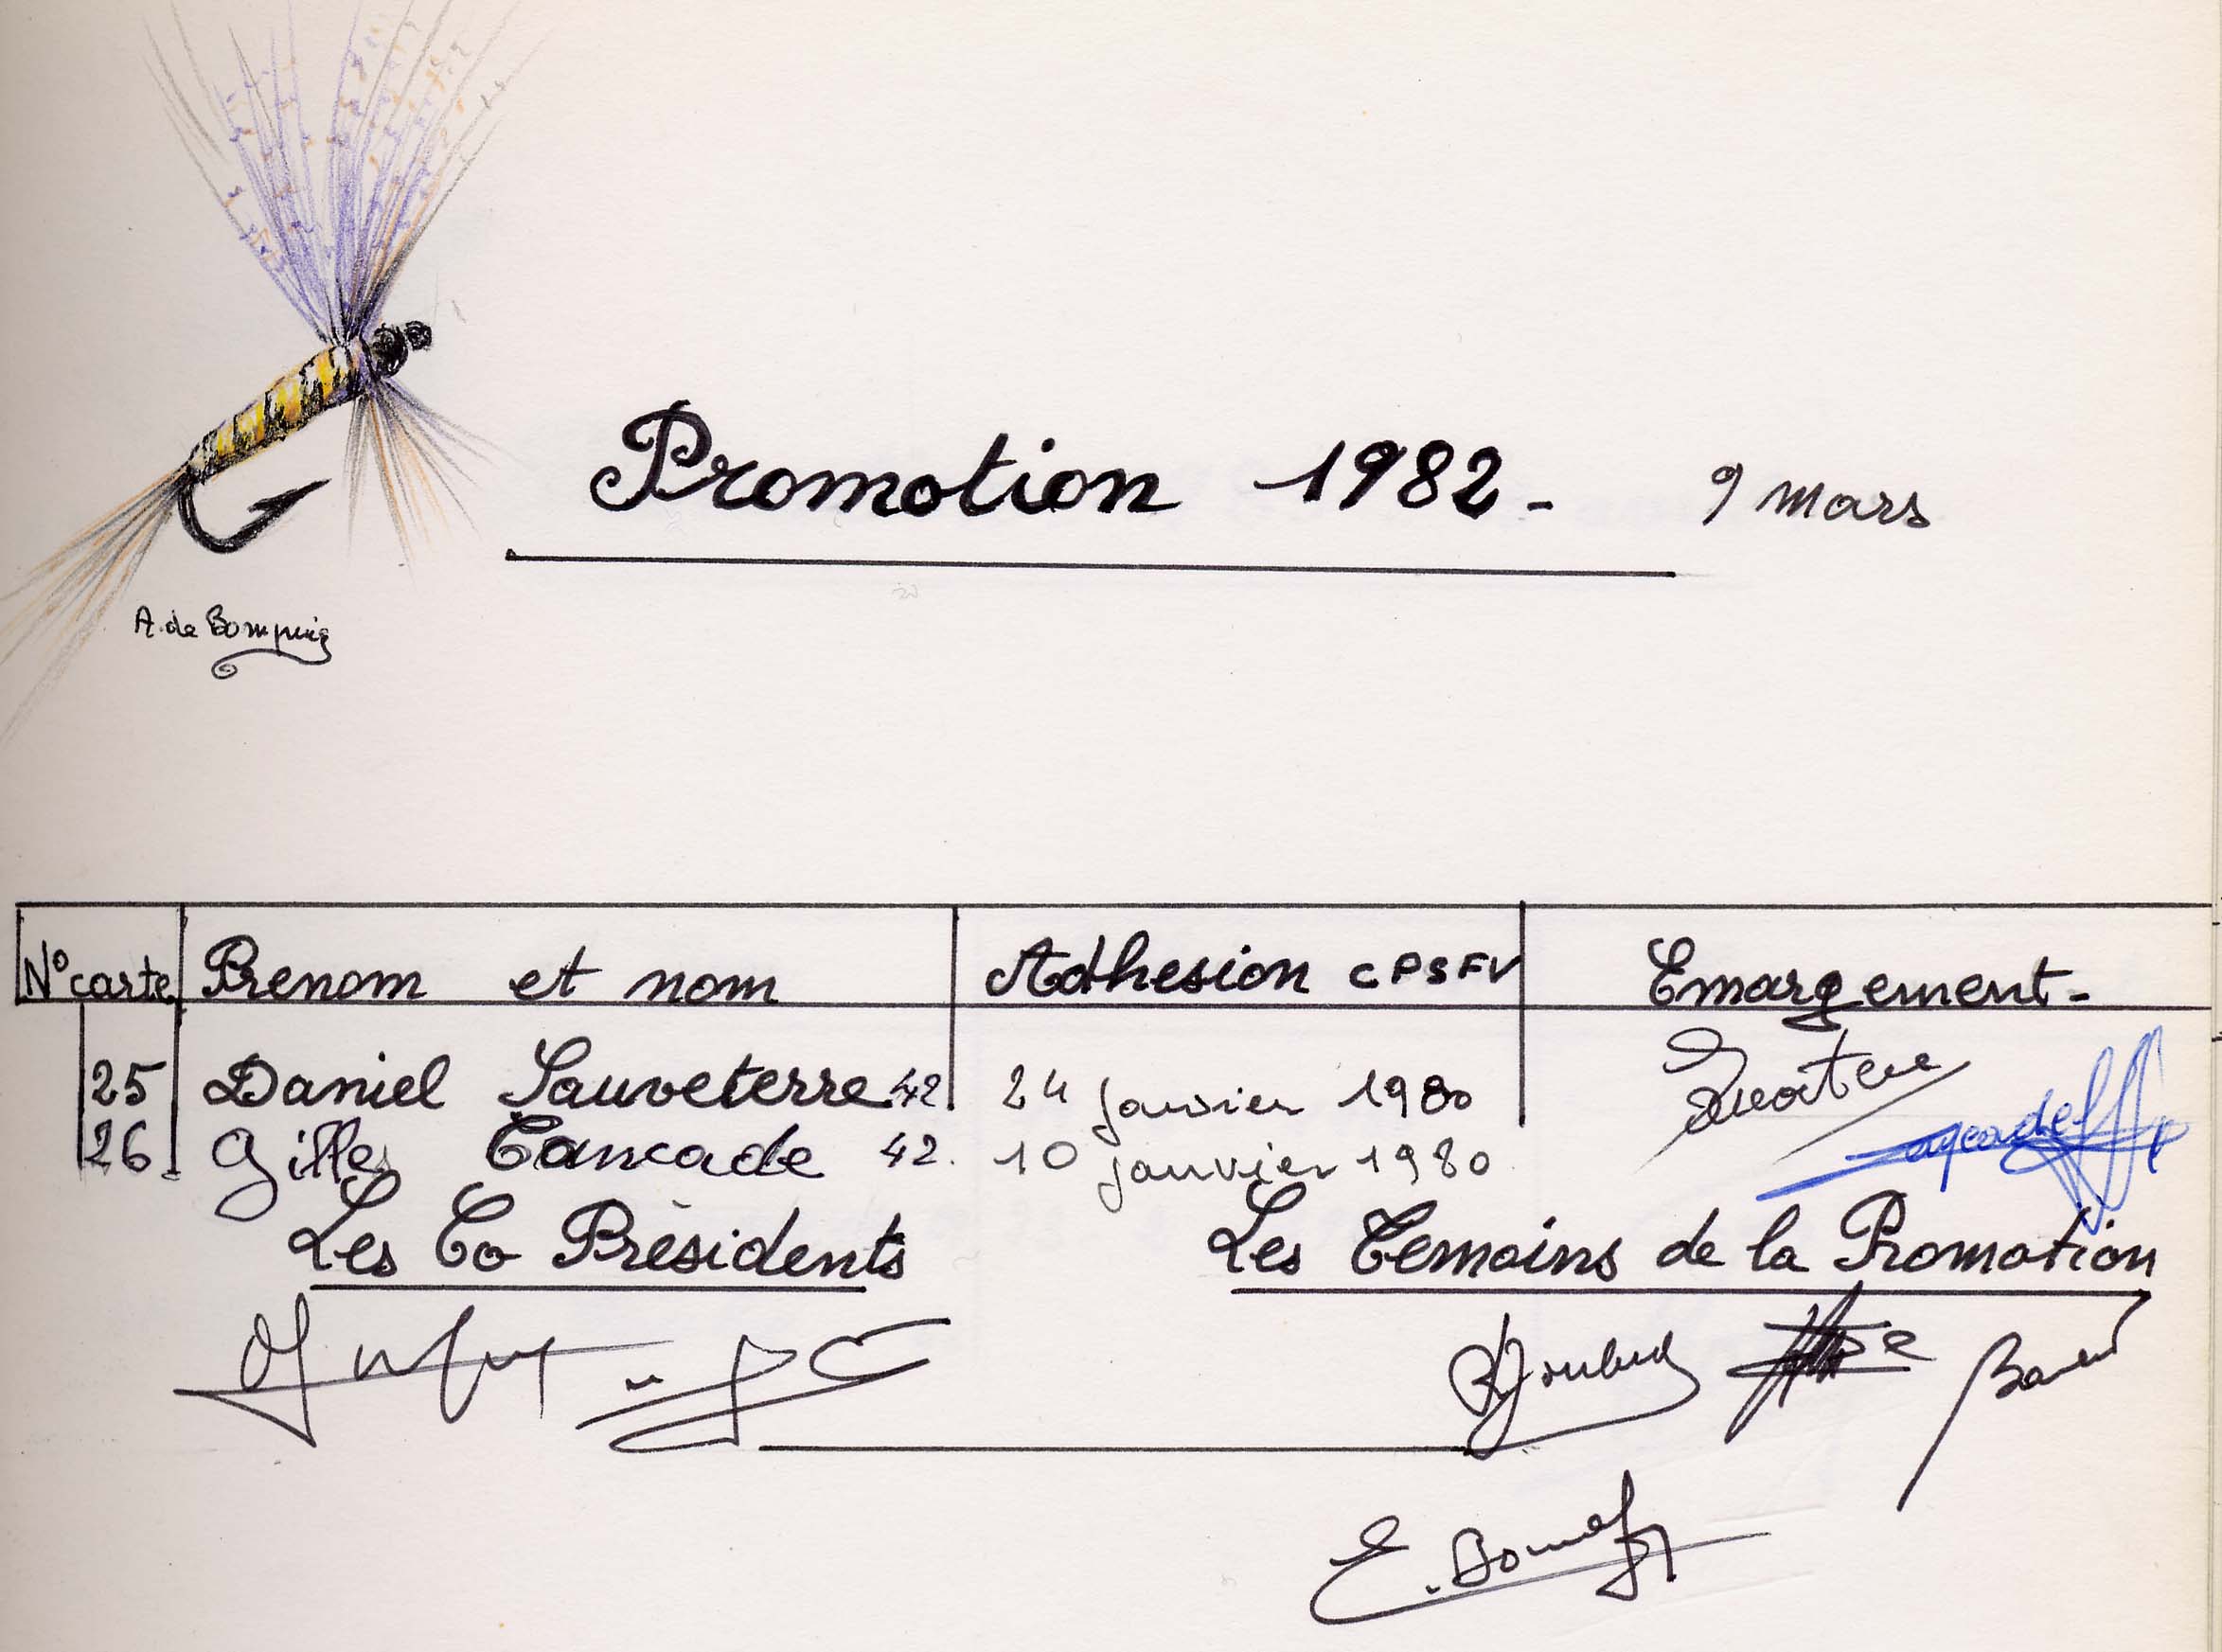 Promotion 1982 - 9 mars
A. de Bompuig
N° carte Prenom et nom Adhesion CPSFV Emargement -
25 Daniel Sauveterre 42 24 janvier 1980
26 Gilles Cancade 42. 10 janvier 1980
Les Co Présidents Les Temoins de la Promotion